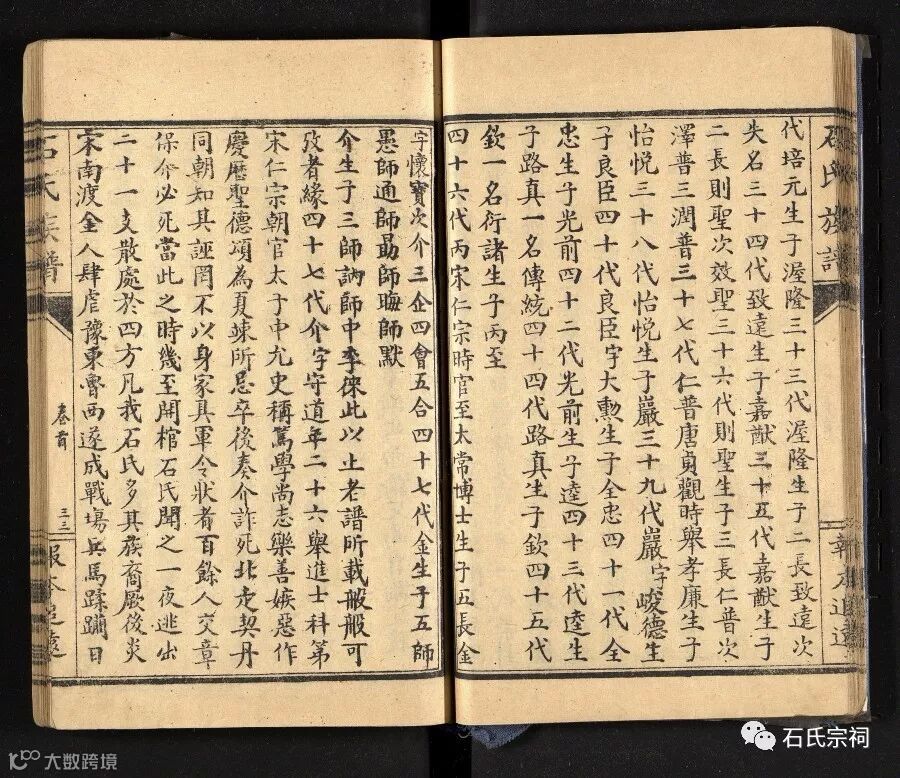 石氏族譜
報本追遠
代培元生子渥隆三十三代渥隆生子二長致遠次
失名三十四代致遠生子嘉猷三十五代嘉猷生子
二長則聖次效聖三十六代則聖生子三長仁普次
澤普三潤普三十七代仁普唐貞觀時舉孝廉生子
怡悅三十八代怡悅生子巖三十九代巖字峻德生
子良臣四十代良臣字大勲生子全忠四十一代全
忠生子光前四十二代光前生子逵四十三代逵生
子路真一名傳統四十四代路真生子欽四十五代
欽一名衍諸生子丙至
四十六代丙宋仁宗時官至太常博士生子五長金
字懷寶次介三企四會五合四十七代金生子五師
愚師通師勗師晦師默
介生子三師訥師中季徠此以止老譜所載般般可
攷者緣四十七代介字守道年二十六舉進士科第
宋仁宗朝官太子中允史稱篤學尚志樂善嫉惡作
慶歷聖德頌為夏竦所忌卒後奏介詐死北走契丹
同朝知其誣罔不以身家具軍令狀者百餘人交章
保介必死當此之時幾至開棺石氏聞之一夜逃出
二十一支散處於四方凡我石氏多其族裔厥後炎
宋南渡金人肆虐豫東魯西遂成戰塲兵馬蹂躪日
石氏族譜
卷首
三三
報本追遠
石氏宗祠
大数跨境